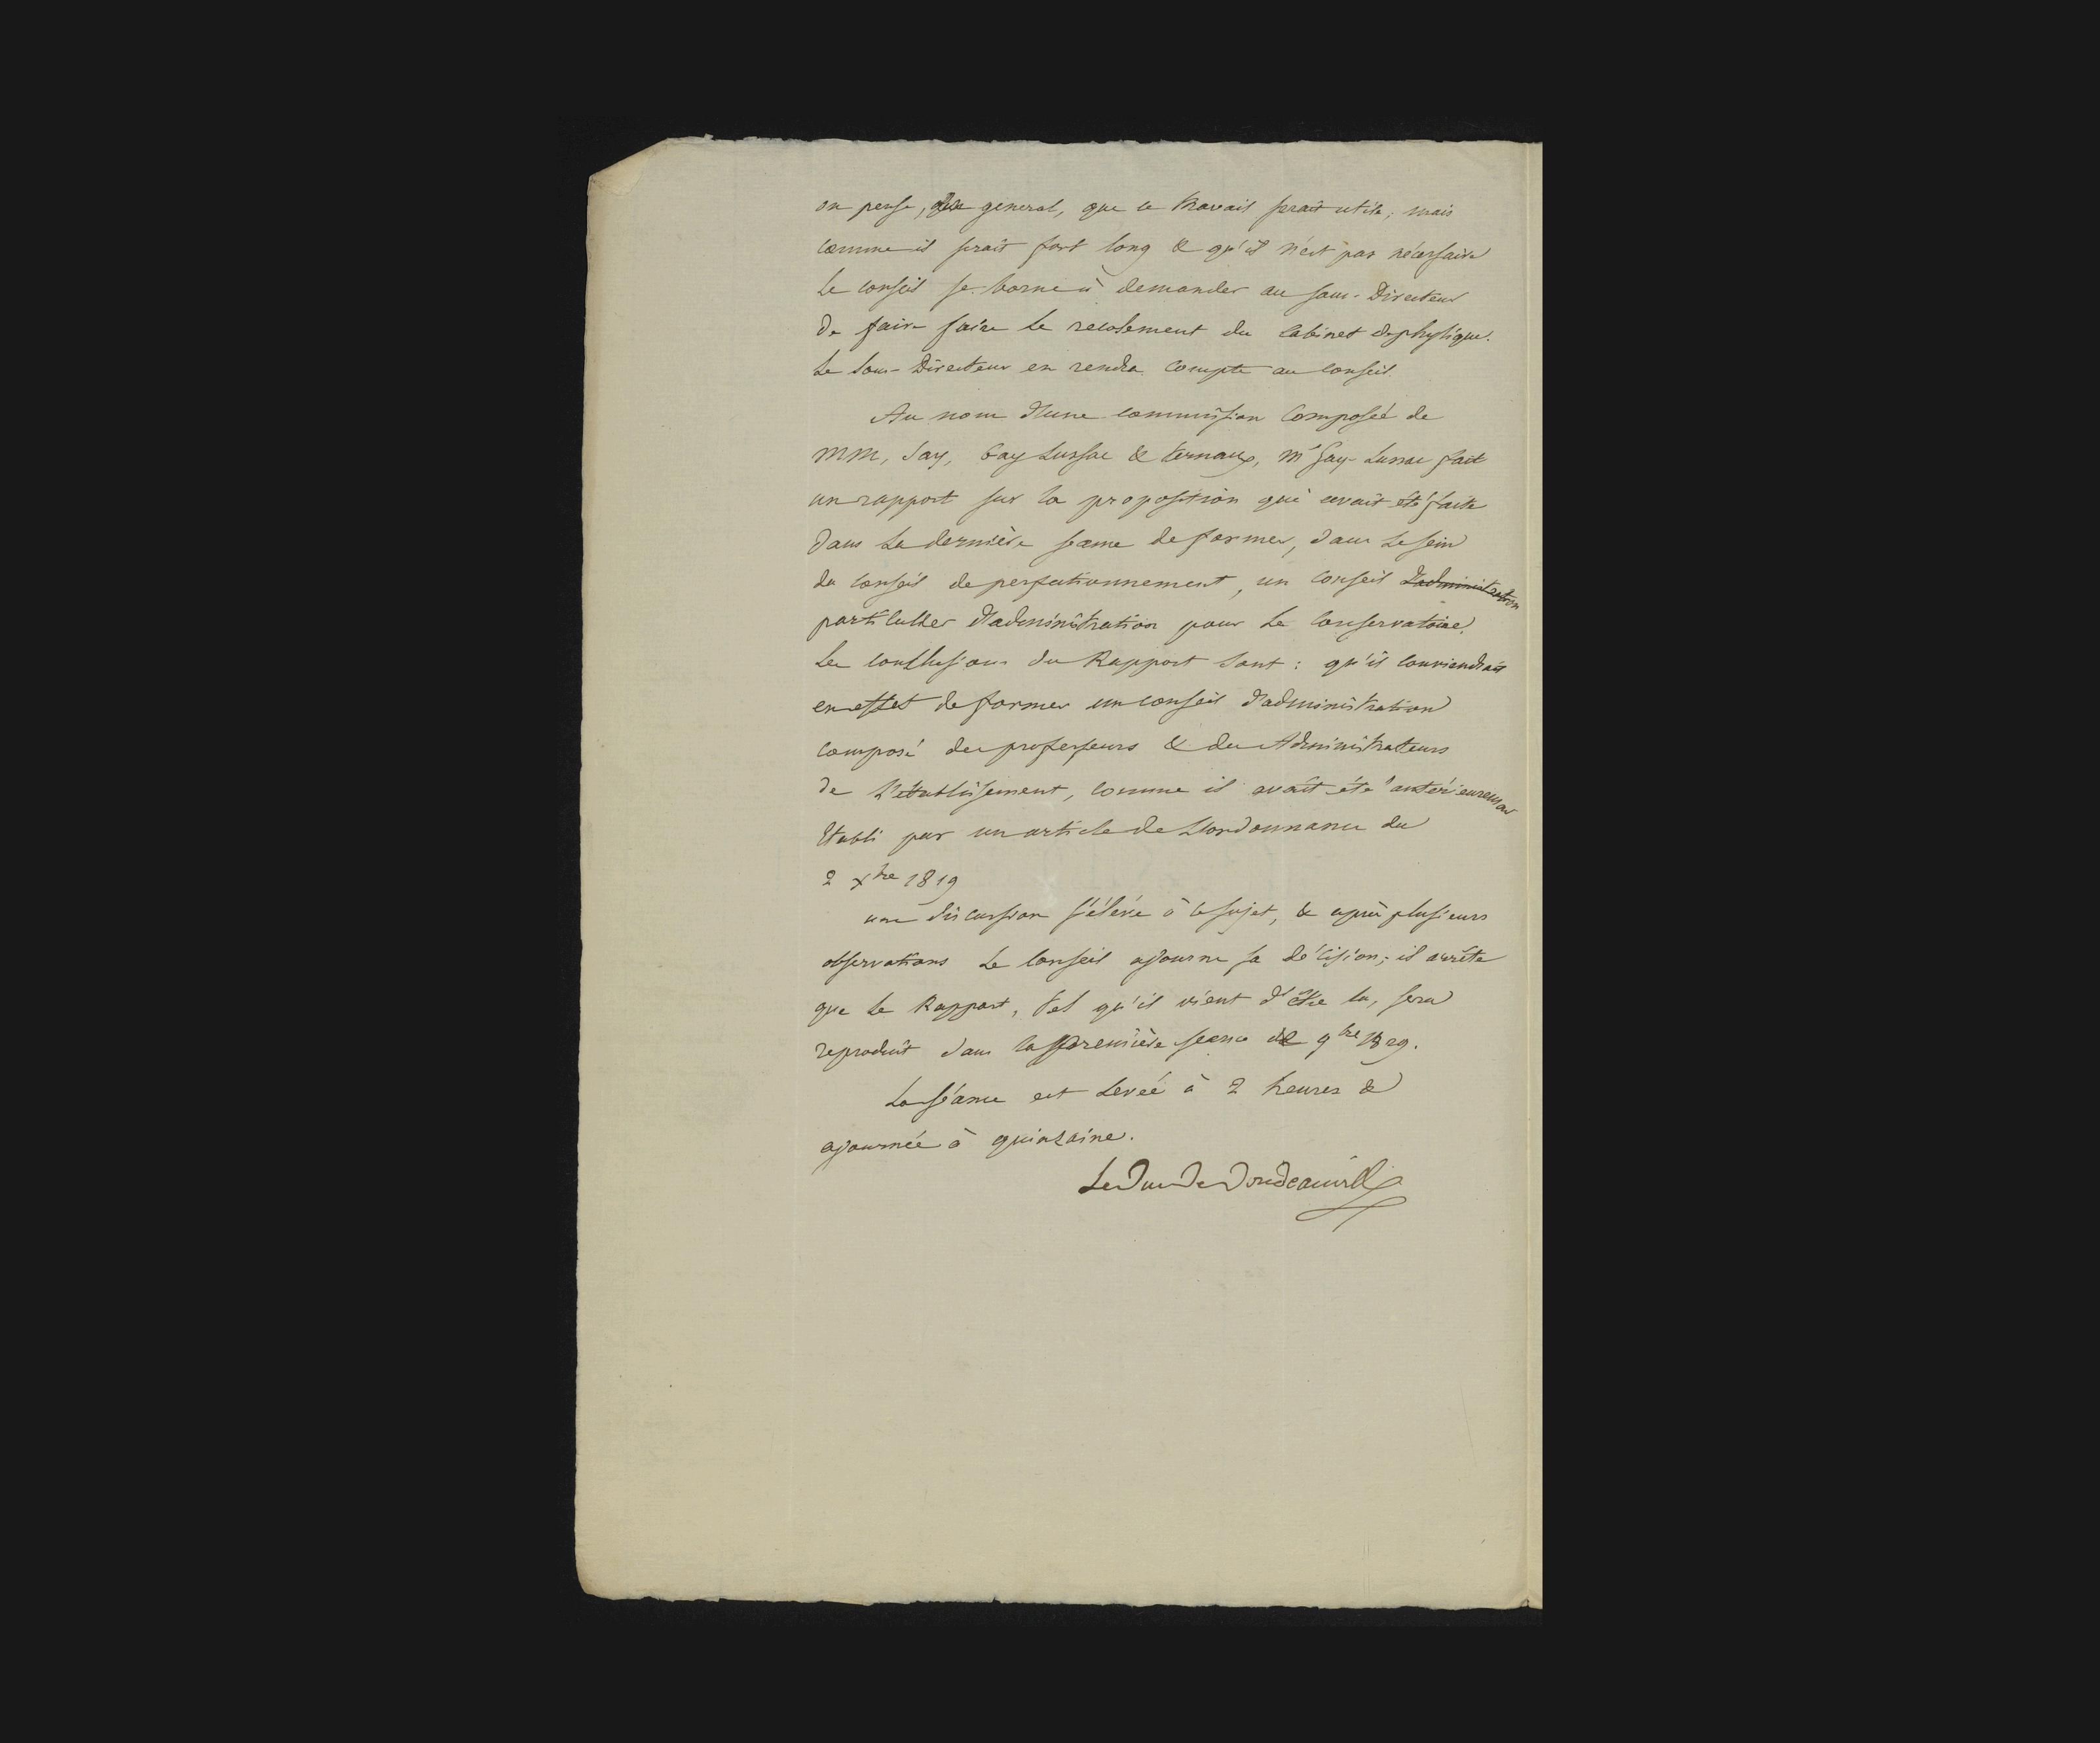 on pense, en general, que ce travail serait utile; mais
comme il serait fort long & qu'il n'est pas nécessaire
Le conseil se borne à demander au sous-Directeur
de faire faire le recolement du Cabinet de physique.
Le Sous-Directeur en rendra compte au conseil.
Au nom d'une commission Composée de
MM, Say, Gay Lussac & ternaux, Mr Gay-Lussac fait
un rapport sur la proposition qui avait été faite
dans la dernière seance de former, dans Le sein
du conseil de perfectionnement, un conseil d'administration
particulier d'administration pour Le Conservatoire.
Les conclusions du Rapport sont : qu'il conviendrait
en effet de former un conseil d'administration
composé des professeurs & des Administrateurs
de L'établissement, comme il avait été antérieurement
Etabli par un article de L'ordonnance du
2 Xbre 1819
une discussion s'élève à ce sujet, & après plusieurs
observations Le Conseil ajourne sa décision; il arrête
que Le Rapport, tel qu'il vient d'être lu, sera
reproduit dans la première seance de 9bre 1829.
La séance est Levée à 2 heures &
ajournée à quinzaine.
Le Duc De Doudeauville